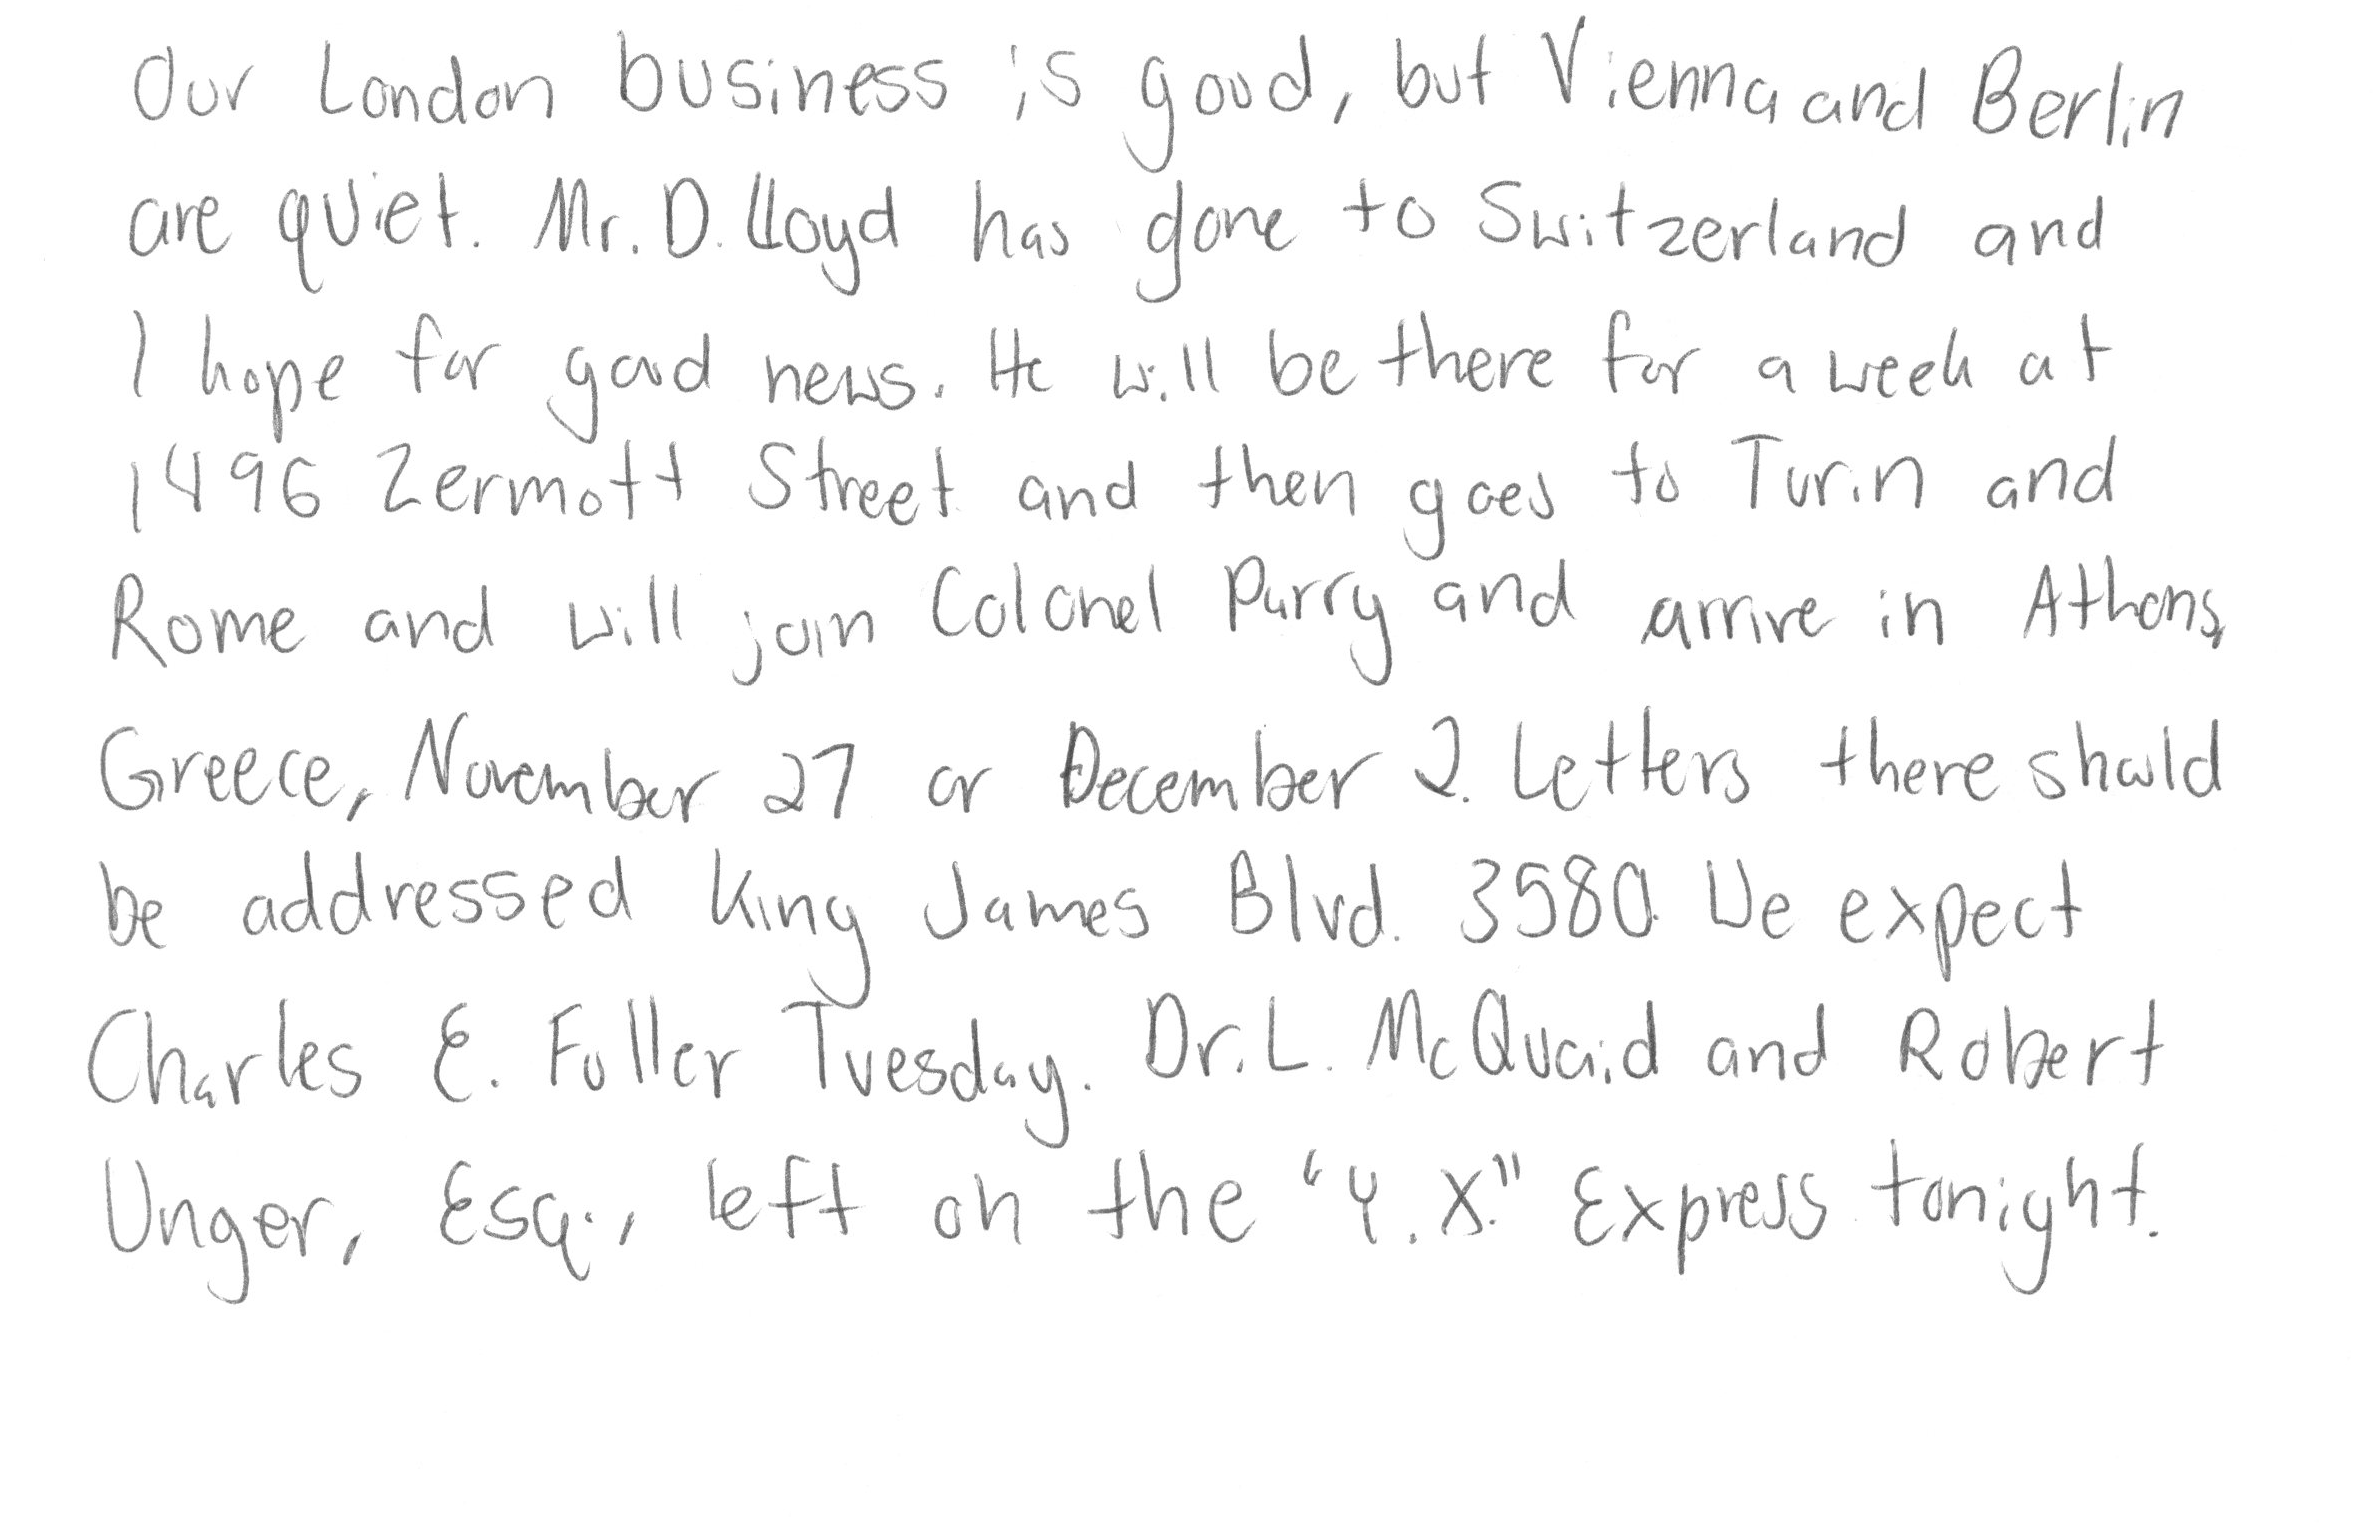 Our London business is good, but Vienna and Berlin
are quiet. Mr. D. Lloyd has gone to Switzerland and
I hope for good news. He will be there for a week at
1496 Zermott Street and then goes to Turin and
Rome and will join Colonel Parry and arrive in Athens,
Greece, November 27 or December 2. Letters there should
be addressed King James Blvd. 3580. We expect
Charles E. Fuller Tuesday. Dr. L. McQuaid and Robert
Unger, Esq., left on the "Y.X." Express tonight.